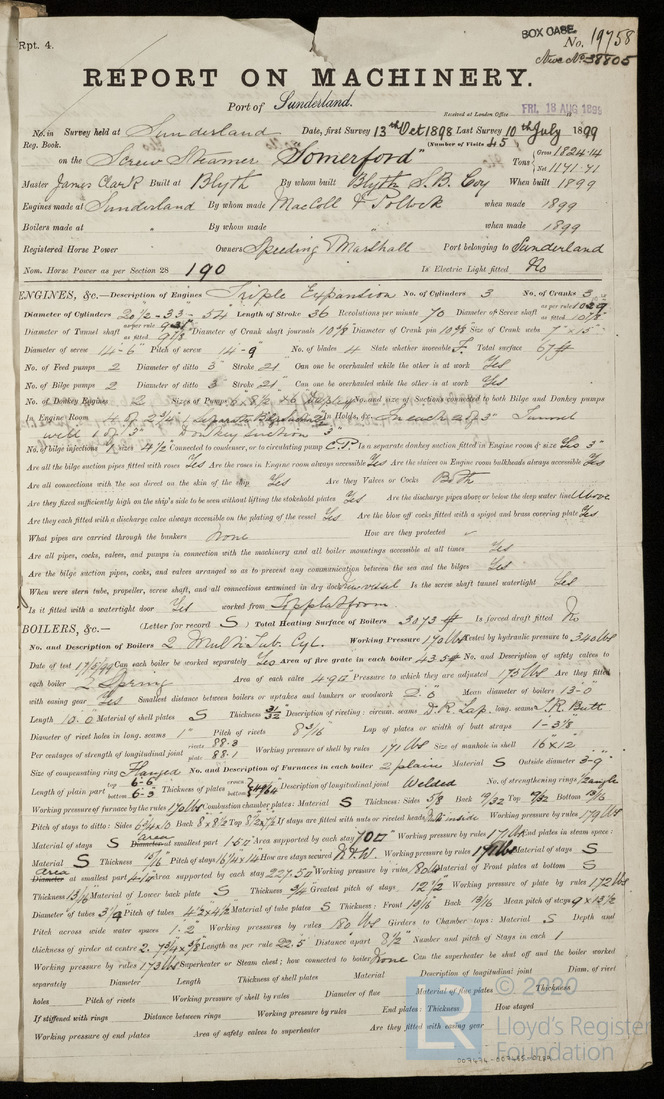 Rpt. 4.
BOX CASE
No. 19758
Nwc No 38805
REPORT ON MACHINERY.
Port of Sunderland.
Received at London Office FRI. 18 AUG 1899
No. in Survey held at Sunderland Date, first Survey 13th Oct 1898 Last Survey 10th July 1899
Reg. Book. (Number of Visits 45
on the Screw Steamer "Somerford" Tons Gross 1824.14 Net 1171.71
Master James Clark Built at Blyth By whom built Blyth S. B. Coy When built 1899
Engines made at Sunderland By whom made MacColl & Pollock when made 1899
Boilers made at " By whom made " when made 1899
Registered Horse Power Owners Speeding & Marshall Port belonging to Sunderland
Nom. Horse Power as per Section 28 190 Is Electric Light fitted No
ENGINES, &c.—Description of Engines Triple Expansion No. of Cylinders 3 No. of Cranks 3
Diameter of Cylinders 20½-33-54 Length of Stroke 36 Revolutions per minute 70 Diameter of Screw shaft as per rule as fitted
Diameter of Tunnel shaft as per rule as fitted Diameter of Crank shaft journals Diameter of Crank pin Size of Crank webs 7" x 15"
Diameter of screw 14-6" Pitch of screw 14-9" No. of blades 4 State whether moveable Total surface 67 ft
No. of Feed pumps 2 Diameter of ditto 3" Stroke 21" Can one be overhauled while the other is at work Yes
No. of Bilge pumps 2 Diameter of ditto 3" Stroke 21" Can one be overhauled while the other is at work Yes
No. of Donkey Engines 2 Sizes of Pumps No. and size of Suctions connected to both Bilge and Donkey pumps
In Engine Room 4 of In Holds, &c. Tunnel
well 1 of 3" Donkey suction 3"
No. of bilge injections 1 sizes 4½ Connected to condenser, or to circulating pump C.P. Is a separate donkey suction fitted in Engine room & size Yes 3"
Are all the bilge suction pipes fitted with roses Yes Are the roses in Engine room always accessible Yes Are the sluices on Engine room bulkheads always accessible Yes
Are all connections with the sea direct on the skin of the ship Yes Are they Valves or Cocks Both
Are they fixed sufficiently high on the ship's side to be seen without lifting the stokehold plates Yes Are the discharge pipes above or below the deep water line Above
Are they each fitted with a discharge valve always accessible on the plating of the vessel Yes Are the blow off cocks fitted with a spigot and brass covering plate Yes
What pipes are carried through the bunkers None How are they protected
Are all pipes, cocks, valves, and pumps in connection with the machinery and all boiler mountings accessible at all times Yes
Are the bilge suction pipes, cocks, and valves arranged so as to prevent any communication between the sea and the bilges Yes
When were stern tube, propeller, screw shaft, and all connections examined in dry dock New vessel Is the screw shaft tunnel watertight Yes
Is it fitted with a watertight door Yes worked from Top platform
BOILERS, &c.— (Letter for record S) Total Heating Surface of Boilers 3073 ft Is forced draft fitted No
No. and Description of Boilers 2 Mult. Tub. Cyl. Working Pressure 170 lbs Tested by hydraulic pressure to 340 lbs
Date of test 17/5/99 Can each boiler be worked separately Yes Area of fire grate in each boiler 43.5 ft No. and Description of safety valves to
each boiler 2 Spring Area of each valve Pressure to which they are adjusted 175 lbs Are they fitted
with easing gear Yes Smallest distance between boilers or uptakes and bunkers or woodwork Mean diameter of boilers 13-0
Length 10-0 Material of shell plates S Thickness 31/32 Description of riveting: circum. seams D.R. Lap. long. seams T.R. Butt
Diameter of rivet holes in long. seams 1" Pitch of rivets Lap of plates or width of butt straps 1-3⅞
Per centages of strength of longitudinal joint rivets 88.3 plate 88.1 Working pressure of shell by rules 171 lbs Size of manhole in shell 16 x 12
Size of compensating ring Flanged No. and Description of Furnaces in each boiler 2 plain Material S Outside diameter 3-9"
Length of plain part top 6-6 bottom 6-3 Thickness of plates crown bottom 49/64 Description of longitudinal joint Welded No. of strengthening rings 2 angle
Working pressure of furnace by the rules 170 lbs Combustion chamber plates: Material S Thickness: Sides 5/8 Back 19/32 Top 9/32 Bottom
Pitch of stays to ditto: Sides Back Top If stays are fitted with nuts or riveted heads Nuts inside Working pressure by rules 179 lbs
Material of stays S Area at smallest part Area supported by each stay Working pressure by rules 171 lbs End plates in steam space:
Material S Thickness Pitch of stays 16¼ x 14 How are stays secured Working pressure by rules Material of stays S
Area Diameter at smallest part Area supported by each stay Working pressure by rules Material of Front plates at bottom S
Thickness 13/16 Material of Lower back plate S Thickness 3/4 Greatest pitch of stays 12½ Working pressure of plate by rules 172 lbs
Diameter of tubes 3¼ Pitch of tubes Material of tube plates S Thickness: Front 19/16 Back 13/16 Mean pitch of stays 9 x 13½
Pitch across wide water spaces 1.2" Working pressures by rules 180 lbs Girders to Chamber tops: Material S Depth and
thickness of girder at centre Length as per rule 22.5" Distance apart 8½" Number and pitch of Stays in each 1
Working pressure by rules 173 lbs Superheater or Steam chest; how connected to boiler None Can the superheater be shut off and the boiler worked
separately Diameter Length Thickness of shell plates Material Description of longitudinal joint Diam. of rivet
holes Pitch of rivets Working pressure of shell by rules Diameter of flue Material of flue plates Thickness
If stiffened with rings Distance between rings Working pressure by rules End plates: Thickness How stayed
Working pressure of end plates Area of safety valves to superheater Are they fitted with easing gear
LR
© 2020
Lloyd's Register
Foundation